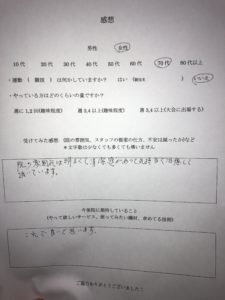 感想
男性 女性
10代 20代 30代 40代 50代 60代 70代 80代以上
・運動( 競技 )は何かしていますか? はい(種目名 ) いいえ
・やっている方はどのくらいの量ですか?
週に1,2回(趣味程度) 週3,4以上(趣味程度) 週3,4以上(大会に出場する)
受けてみた感想 (院の雰囲気、スタッフの施術の仕方、不安は減ったかなど)
*文字数は少なくても多くても構いません
院の雰囲気は明るくて清潔感があって気持良く治療して
頂いています。
今後院に期待していること
(やって欲しいサービス、扱ってみたい機材、求めてる技術)
これで良いと思います。
ご協力ありがとうございました!